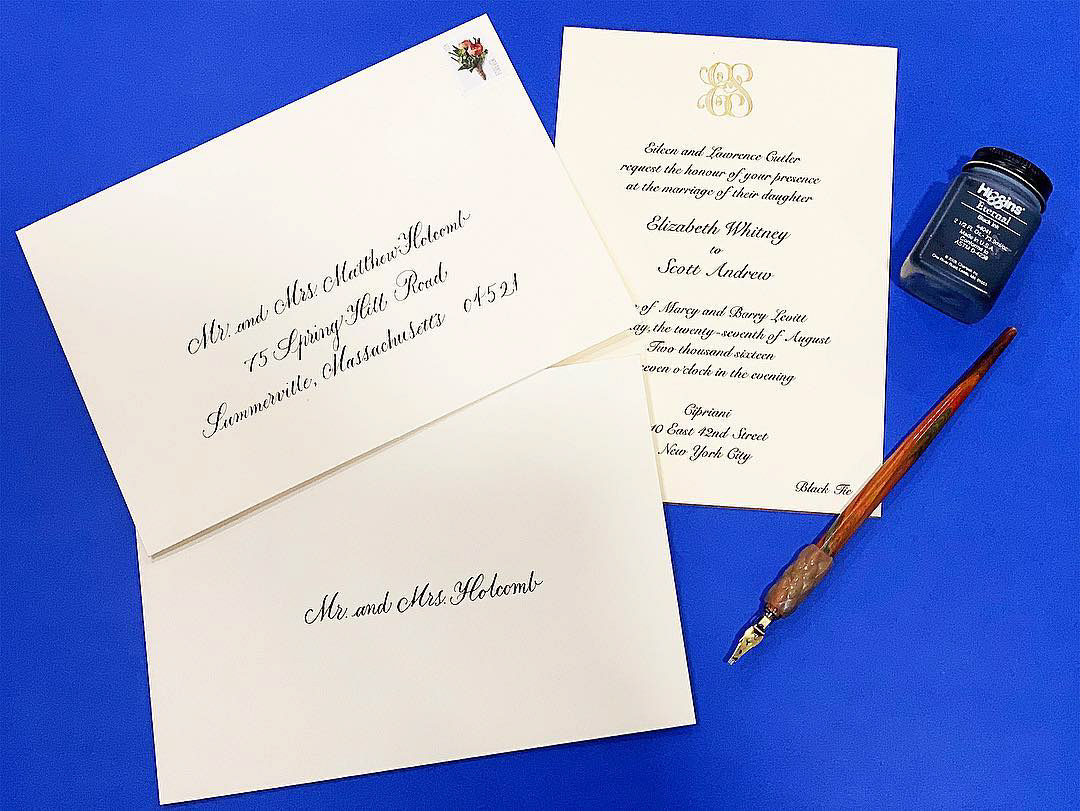 Mr. and Mrs. Matthew Holcomb
75 Spring Hill Road
Summerville, Massachusetts 01521
Mr. and Mrs. Holcomb
ES
Eileen and Lawrence Cutler
request the honour of your presence
at the marriage of their daughter
Elizabeth Whitney
to
Scott Andrew
of Marcy and Barry Levitt
the twenty-seventh of August
Two thousand sixteen
o'clock in the evening
Cipriani
10 East 42nd Street
New York City
Black Tie
Higgins
Eternal
Black Ink
44041
2 1/2 FL. OZ.
Made in U.S.A.